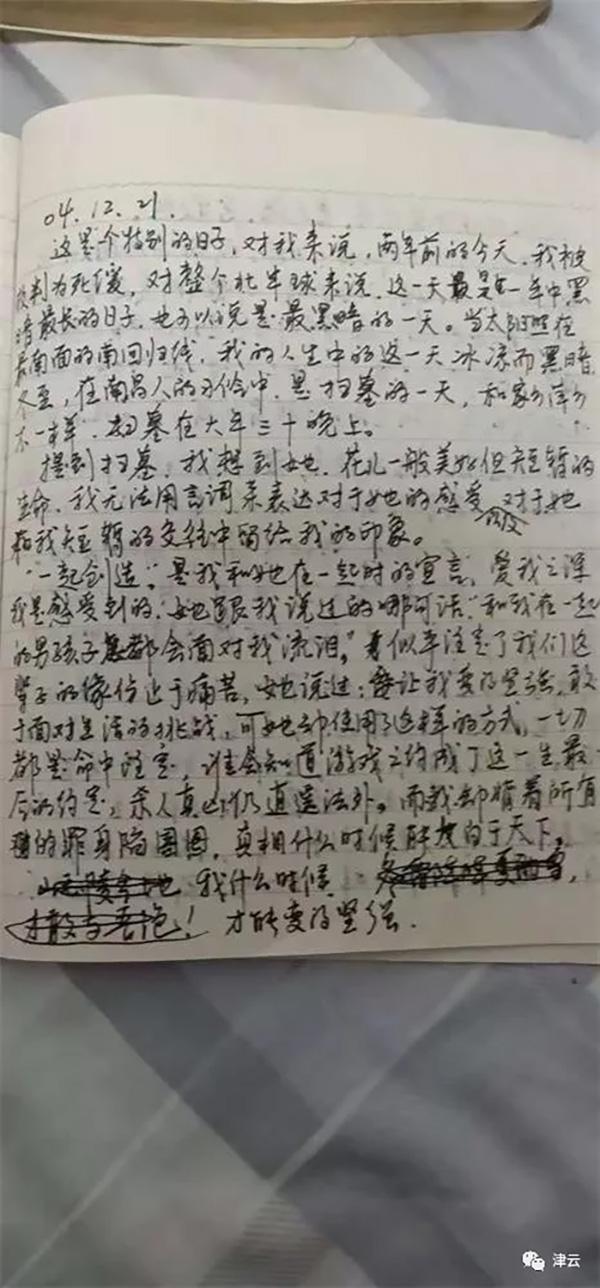 04.12.21.
这是个特别的日子，对我来说，两年前的今天，我被
判为死缓，对整个北半球来说，这一天最是一年中黑
暗最长的日子，也可以说是最黑暗的一天。当太阳照在
最南面的南回归线，我的人生中的这一天冰凉而黑暗，
冬至，在南昌人的习俗中，是扫墓的一天，和家乡萍乡
不一样，扫墓在大年三十晚上。
提到扫墓，我想到她，花儿一般美好但短暂的
生命，我无法用言词来表达对于她的感受，对于她
和我短暂的交往中留给我的印象。
“一起创造”，是我和她在一起时的宣言，爱我之深
我是感受到的，她跟我说过的哪句话：“和我在一起
的男孩子都会面对我流泪，”看似乎注定了我们这
辈子的缘份止于痛苦，她说过：会让我变得坚强，敢
于面对生活的挑战，可她却使用了这样的方式，一切
都是命中注定，谁会知道游戏之约成了这一生最
后的约定，杀人真凶仍逍遥法外，而我却背着所有
的罪身陷囹圄，真相什么时候白于天下，
我什么时候
才能变得坚强．
津云